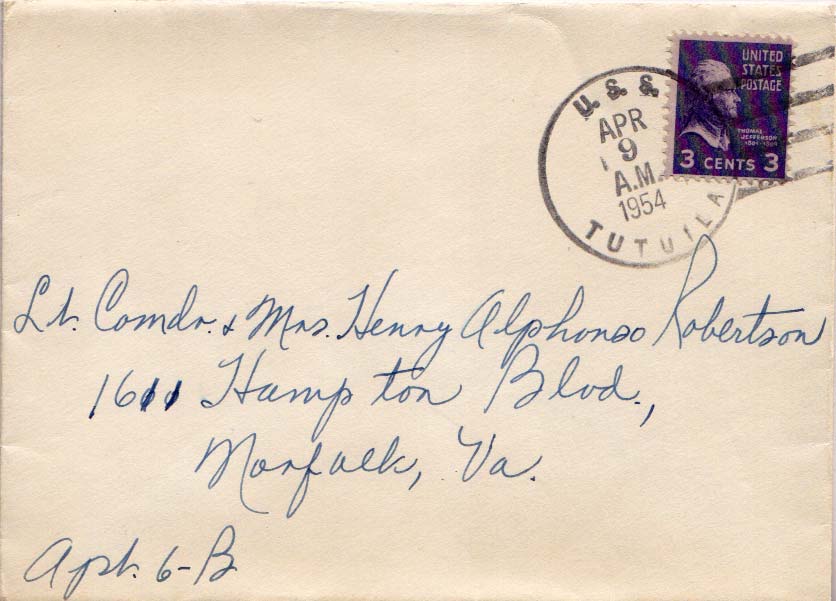 U.S.S.
APR
9
A.M.
1954
TUTUILA
UNITED
STATES
POSTAGE
THOMAS
JEFFERSON
1801-1809
3 CENTS 3
Lt. Comdr. & Mrs. Henry Alphonso Robertson
1611 Hampton Blvd.,
Norfolk, Va.
Apt. 6-B